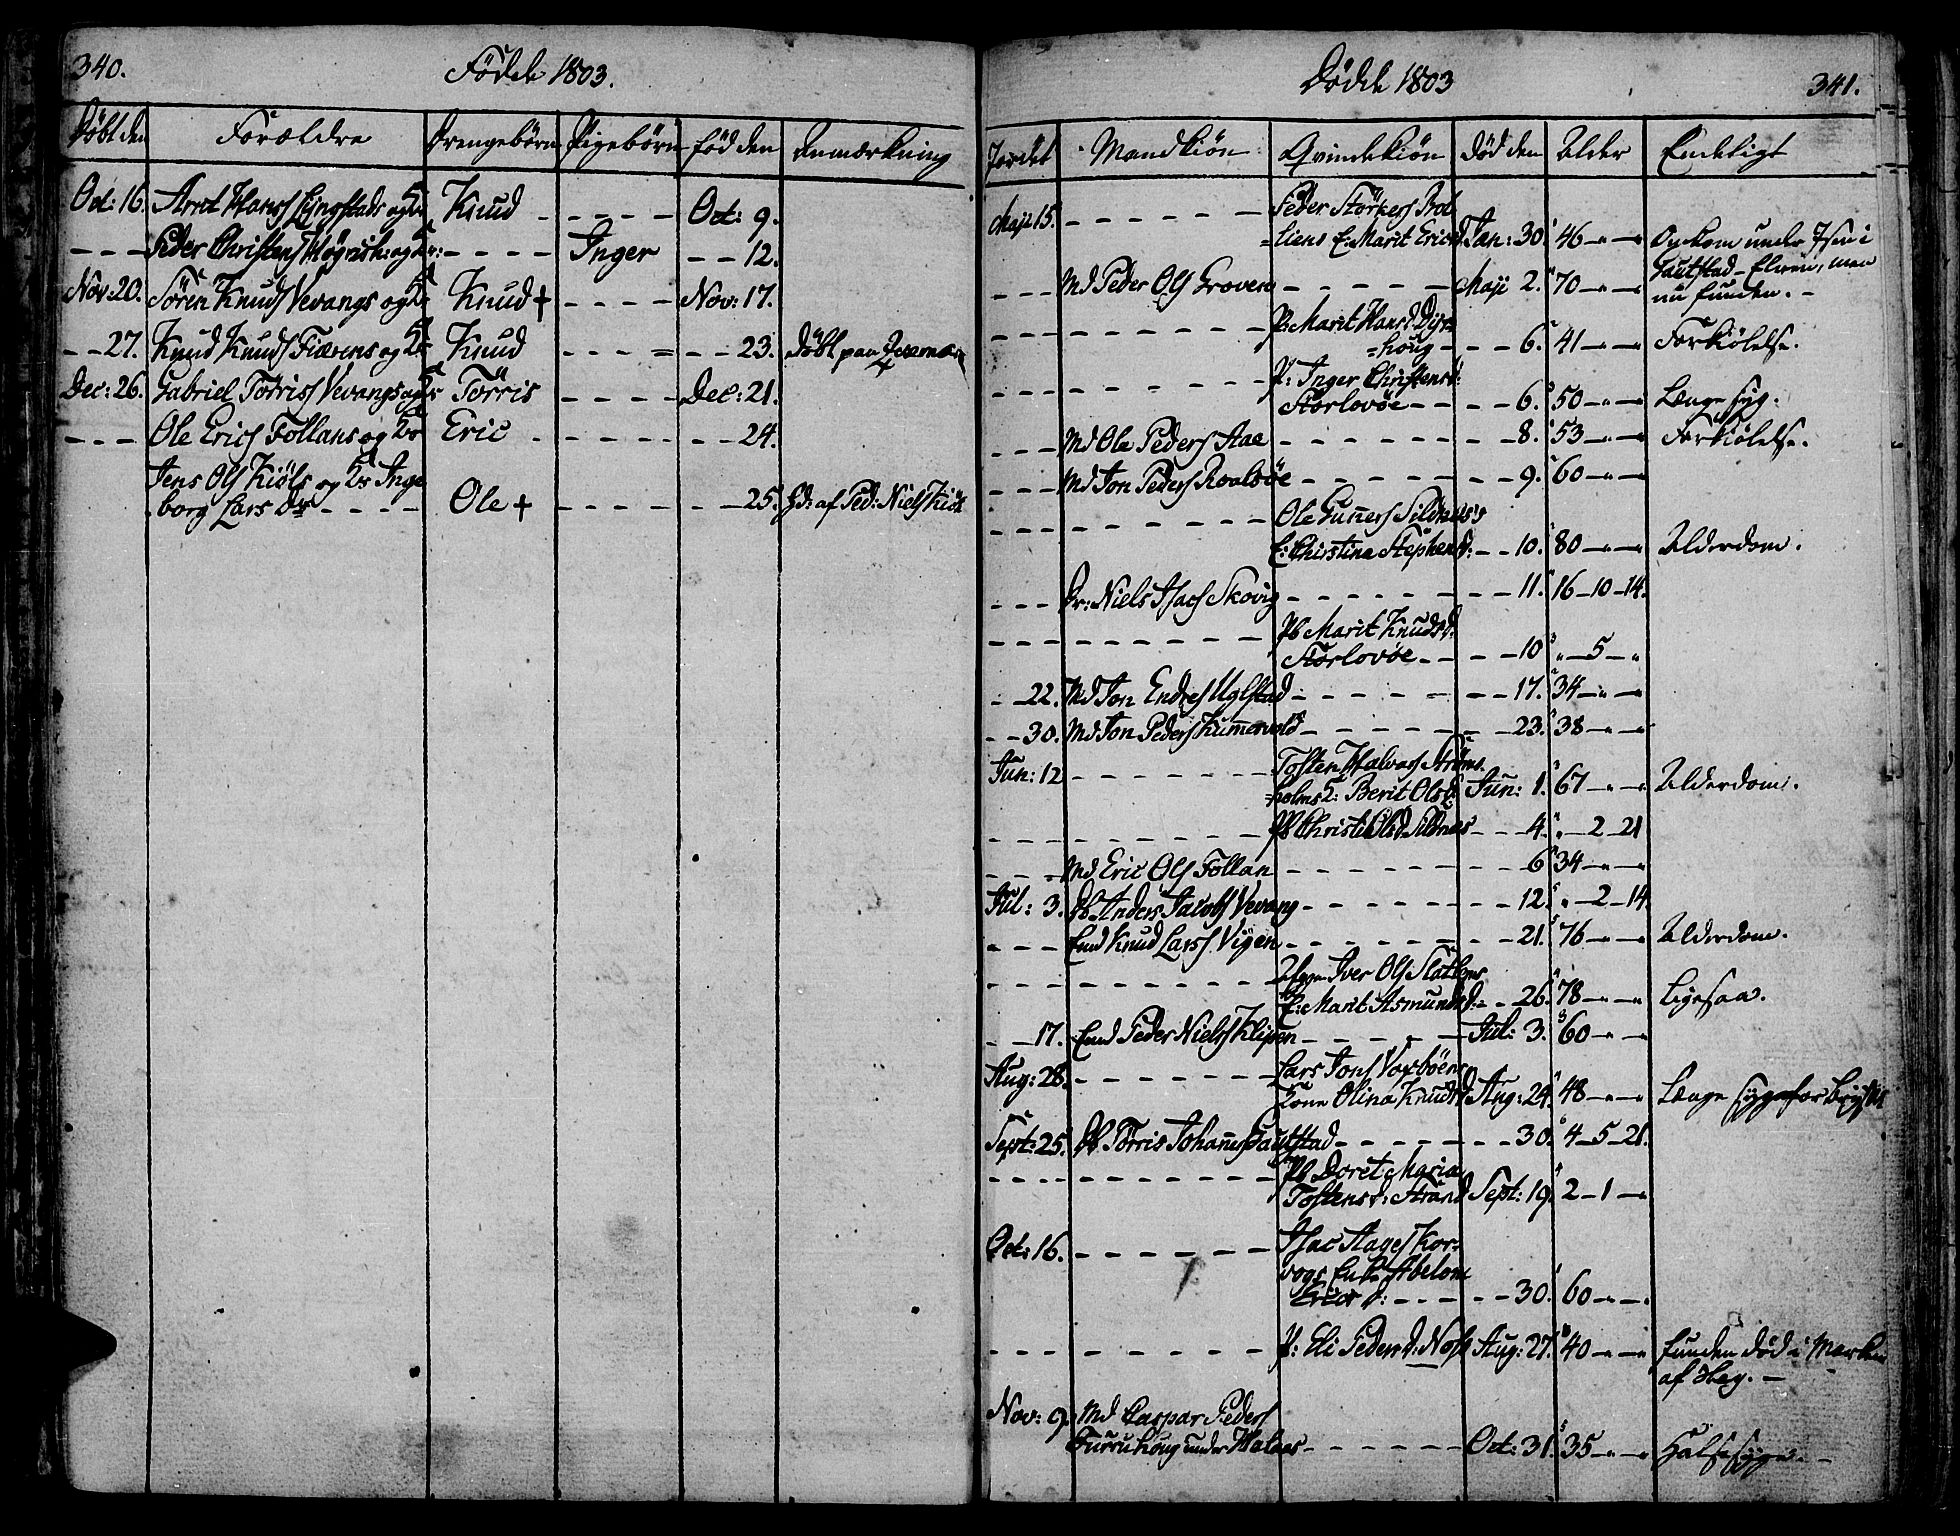 340.
Fødde 1803.
Døbt den Forældre Drengebørn Pigebørn fød den Anmærkning
Oct: 16. Arnt Hans Lyngstads og K: Knud - - - - - Oct: 9.
- - - Peder Christens Høgrisk: og K: - - - - Inger - - 12.
Nov: 20. Søren Knuds Vevangs og K: Knud + - - - - Nov: 17.
- - 27. Knud Knuds Fiærens og K: Knud - - - = - - 23. Døbt paa
Dec: 26. Gabriel Tørriss Vevangs og K: Tørris - - - - Dec: 21.
- - - Ole Erics Follans og K: Eric - - - - - - - 24.
Jens Ols Kiøls og K: Inge
borg Lars dr - - - - Ole + - - - - - - - 25. Gd: af Ped: Niels Kiøl
Dødde 1803
341.
Jordet Mandkiøn Qvindekiøn død den Alder Endeligt
Maji 15. - - - - - - Peder Størkers Bot
=liens E: Marit Ericsd. Jan: 30. 46 - " - " Omkom under Isen i
Gautstad-Elven, man
nu funden. -
- - - Md Peder Ols Groven - - - - - Maji 2. 70 - " - "
- - - - - - - - - P: Marit Hansd. Dyr=
=houg - - - 6. 41 - " - " Forkiølelse.
- - - - - - - - - P: Inger Christensd:
Storlovøe - - - - 6. 50 - " - " Længe syg.
- - - Md Ole Peders Aae - - - - - - - - 8. 53 - " - " Forkiølelse.
- - - Md Jon Peders Roalsøe - - - - - - - 9. 60 - " - "
- - - - - - - - - Ole Gunners Sildnes's
E: Christina Stephensd: - - 10. 80 - " - " Alderdom.
- - - Dr: Niels Isacs Skovig - - - - - - - 11. 16 - 10 - 14.
- - - - - - - - - Pb Marit Knudsd.
Storlovøe - - - - 10 " - 5 - "
- - 22. Md Jon Endres Uglstad - - - - - - - 17. 34 - " - "
- - 30. Md Jon Peders Kummervold - - - - - - - 23. 38 - " - "
Jun: 12 - - - - - - Tosten Halvors Strøms=
=holms K: Berit Olsd. Jun: 1. 67 - " - " Alderdom.
- - - - - - - - - Pb Christi Olsd. Sildnes - - - 4. " - 2 - 21
- - - Md Eric Ols Follan - - - - - - - 6 34 - " - "
Jul: 3. Db Anders Jacobs Vevang - - - - - - - 12. " - 2 - 14.
- - - Emd Knud Larss Vigen - - - - - - - 21. 76 - " - " Alderdom.
- - - - - - - - - Iver Ols Slatlems
E: Marit Asmundsd: - - 26. 78 - " - " Ligesaa.
- - 17. Emd Peder Niels Klipen - - - - - Jul: 3. 60 - " - "
Aug: 28. - - - - - - Lars Jons Vaxbøens
Kone Olina Knudsd. Aug: 24. 48 - " - " Længe syg for Bryst
Sept: 25. Db Tørris Johans Gautstad - - - - - - - 30. 4 - 5 - 21.
- - - - - - - - - Pb Doret: Maria
Tostensd: Strand Sept: 19. 2 - 1 - "
Oct: 16. - - - - - - Isac Aages Kor=
vogs Enk: Abelone
Ericsd: - - - - - 30. 60 - " - "
- - - - - - - - - P: Eli Pedersd: Nos Aug: 27. 40 - " - " funden død i Marken
af Slag. -
Nov: 9. Md Caspar Peders
Furruhoug under Halaas - - - - - Oct: 31. 35 - " - " Halssyge. -